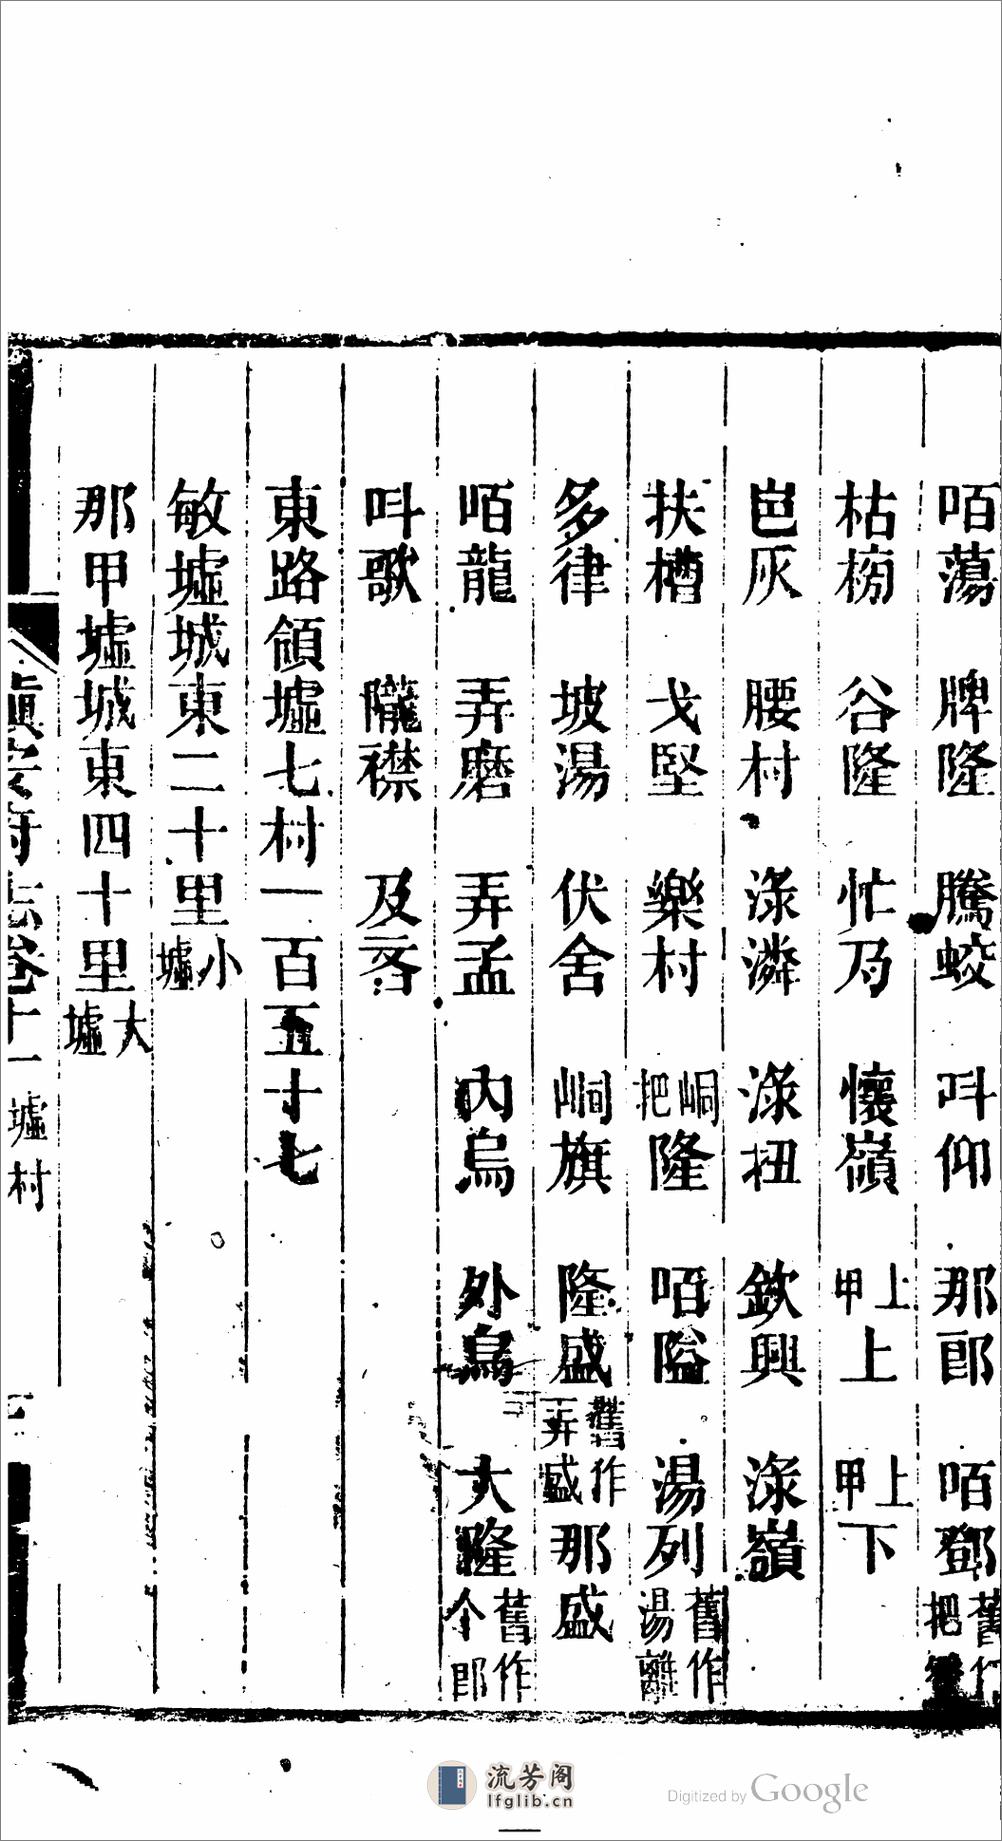 咟蕩　牌隆　騰蛟　呌仰　那郎　咟鄧舊作把
枯榜　谷隆　忙乃　懷嶺　上甲上　上甲下
岜灰　腰村　淥潾　淥扭　欽興　淥嶺
扶槽　戈堅　樂村　峒把隆　咟隘　湯列舊作湯離
多律　坡湯　伏舍　𡼏旗　隆盛舊作弄盛　那盛
咟龍　弄磨　弄孟　內烏　外烏　大隆舊作个郎
呌歌　隴襟　及吝
東路領墟七村一百五十七
敏墟城東二十里小墟
那甲墟城東四十里大墟
鎭安府志卷十一　墟村
流芳阁
lfglib.cn
Digitized by Google